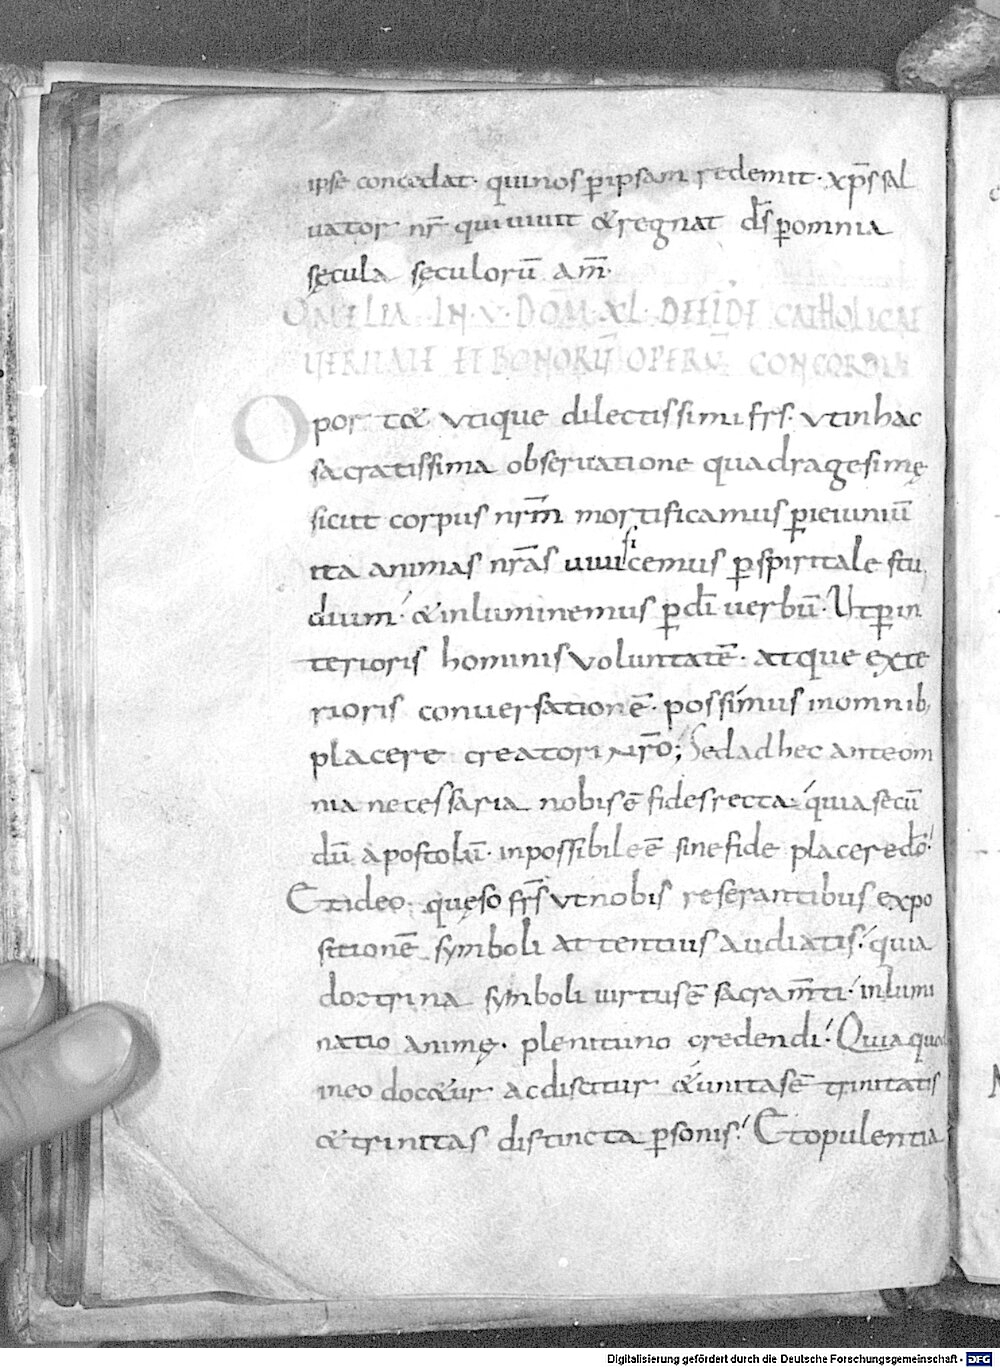 ipse concedat· qui nos p̄ ipsam redemit· xp̄s sal
uator nr̄ qui uiuit & regnat d̄s p̄ omnia
sęcula sęculorū am̄·
OMELIA IN·V·DOM̄·XL·DE FIDE CATHOLICAE
VERITATE ET BONORŪ OPERŪ CONCORDIA
Oport&· utique dilectissimi frs̄· ut in hac
sacratissima obseruatione quadragesimę
sicut corpus nrm̄ mortificamus p̄ ieiuniū
ita animas nrās uiuificemus p̄ spiritale stu
dium· & inluminemus p̄ dī uerbū· Ut p̄ in
terioris hominis voluntatē· atque exte
rioris conuersationē· possimus in omnib;
placere creatori nrō; Sed ad hec ante om
nia necessaria nobis ē fides recta· quia secū
dū apostolū· inpossibile ē sine fide placere dō·
Et ideo· quęso frs̄ ut nobis reserantibus expo
sitionē symboli attentius audiatis· quia
doctrina symboli uirtus ē sacram̄ti· inlumi
natio animę· plenituno credendi· Quia qua
in eo doc&ur ac discitur & unitas ē trinitatis
& trinitas distincta p̄sonis· Et opulentia
Digitalisierung gefördert durch die Deutsche Forschungsgemeinschaft - DFG